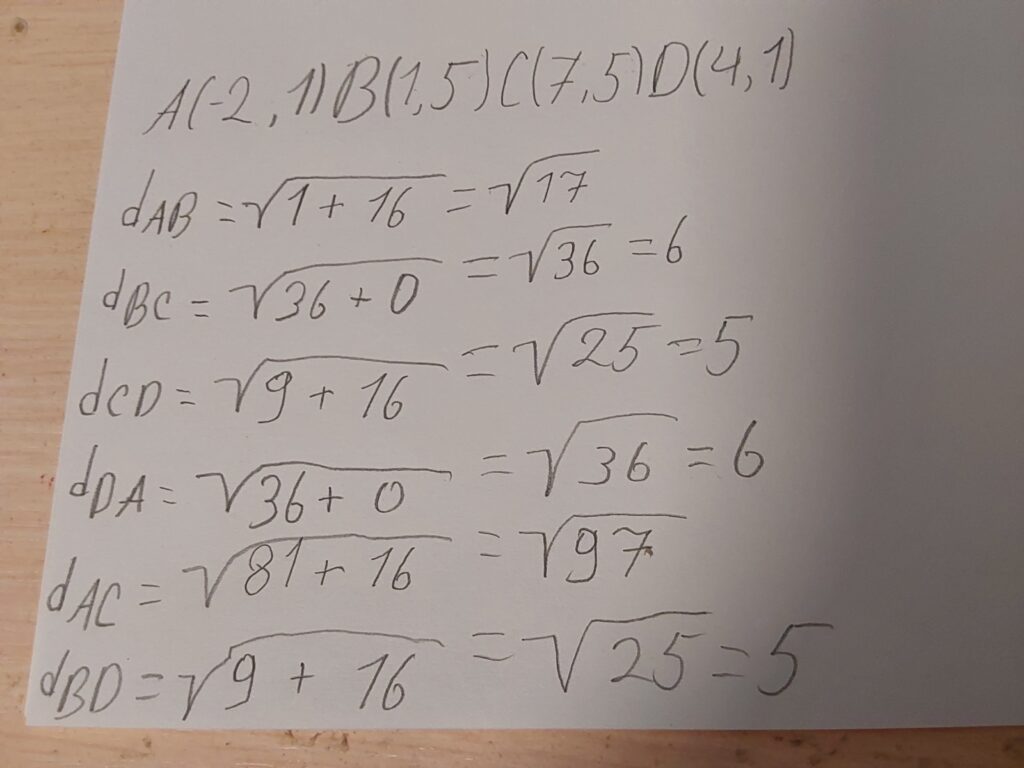 A(-2, 1) B(1,5) C(7,5) D(4,1)
dAB = √1 + 16 = √17
dBC = √36 + 0 = √36 = 6
dCD = √9 + 16 = √25 = 5
dDA = √36 + 0 = √36 = 6
dAC = √81 + 16 = √97
dBD = √9 + 16 = √25 = 5